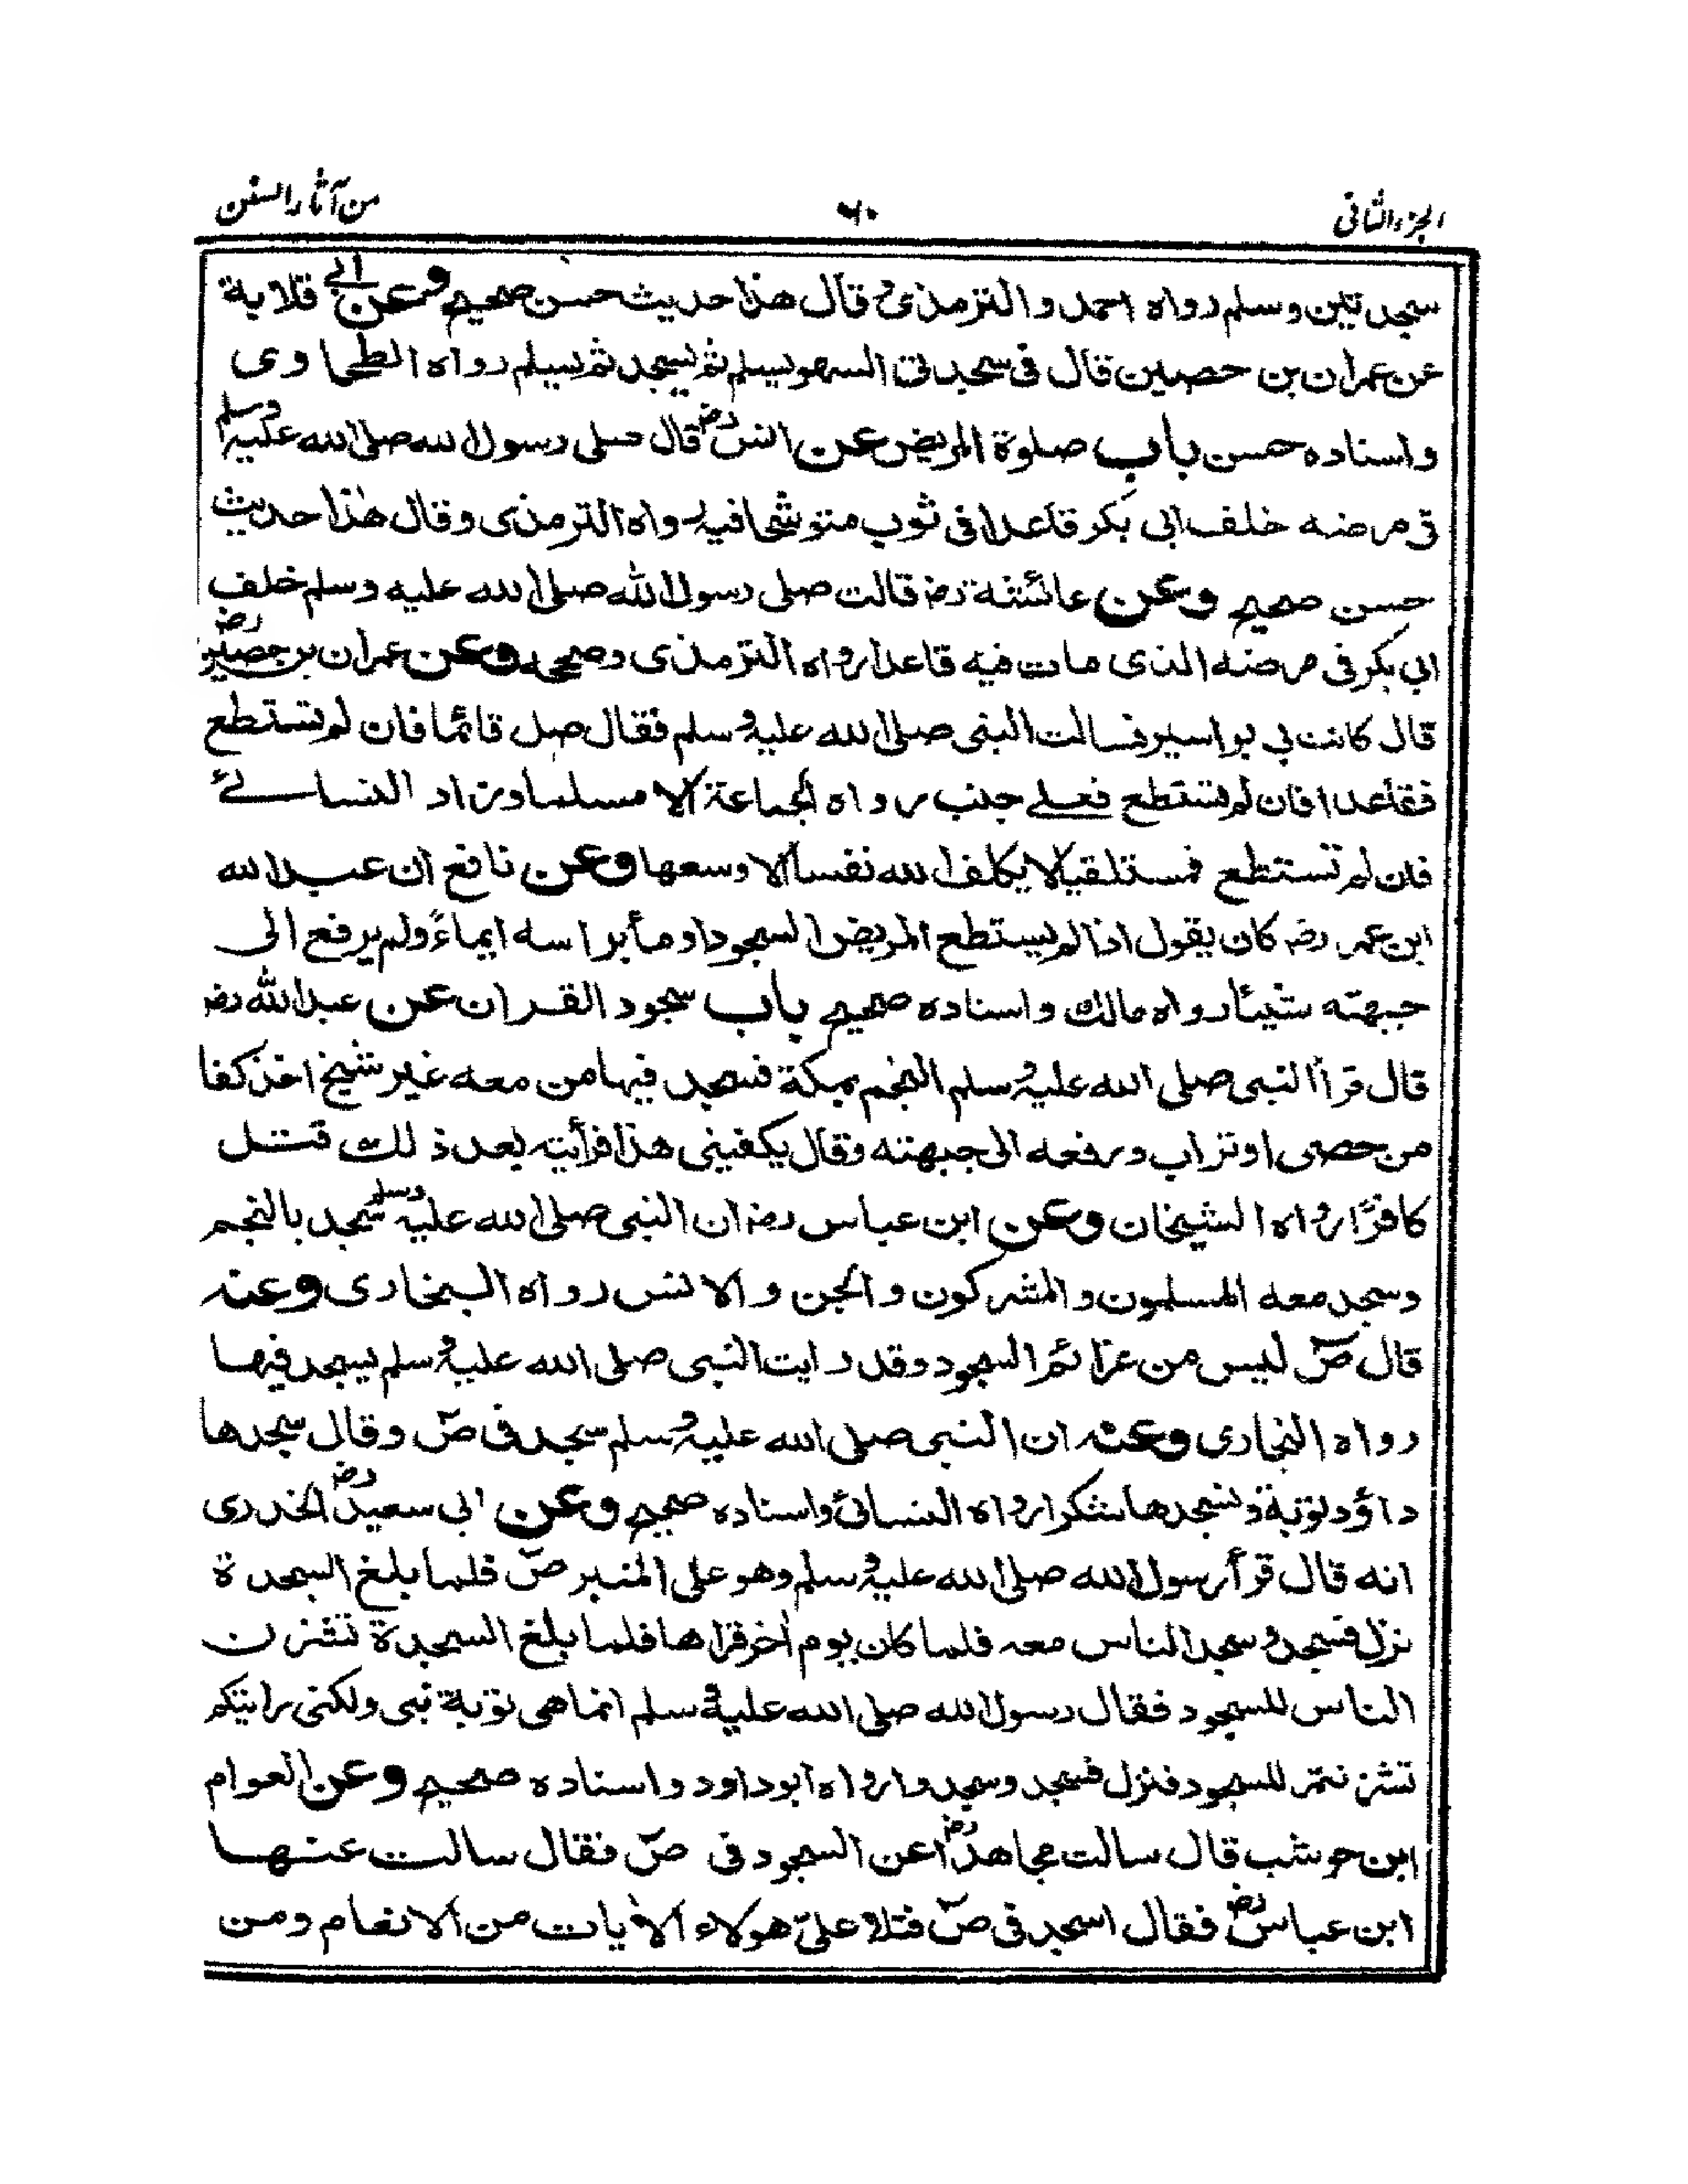 الجزء الثانی ٦٠ من آثار السنن
سجدتین وسلم رواہ احمد والترمذی وقال ھذا حدیث حسن صحیح وعن ابی قلابة
عن عمران بن حصین قال فی سجدتی السھو یسلم ثم یسجد ثم یسلم رواہ الطحاوی
واسنادہ حسن باب صلوة المریض عن انس رضہ قال صلی رسول اللہ صلی اللہ علیہ وسلم
فی مرضہ خلف ابی بکر قاعدا فی ثوب متوشحا فیہ رواہ الترمذی وقال ھٰذا حدیث
حسن صحیح وعن عائشة رضہ قالت صلی رسول اللہ صلی اللہ علیہ وسلم خلف
ابی بکر فی مرضہ الذی مات فیہ قاعدا رواہ الترمذی وصححہ وعن عمران بن حصین رضہ
قال کانت بی بواسیر فسالت النبی صلی اللہ علیہ وسلم فقال صل قائما فان لم تستطع
فقاعدا فان لم تستطع فعلے جنب رواہ الجماعة الا مسلما وزاد النسائے
فان لم تستطع فمستلقیا لا یکلف اللہ نفسا الا وسعھا وعن نافع ان عبد اللہ
ابن عمر رضہ کان یقول اذا لم یستطع المریض السجود اومأ براسہ ایماءً ولم یرفع الی
جبھتہ شیئا رواہ مالک واسنادہ صحیح باب سجود القران عن عبد اللہ رضہ
قال قرأ النبی صلی اللہ علیہ وسلم النجم بمکة فسجد فیھا من معہ غیر شیخ اخذ کفا
من حصی او تراب ورفعہ الی جبھتہ وقال یکفینی ھذا فرأیتہ بعد ذلک قتل
کافرًا رواہ الشیخان وعن ابن عباس رضہ ان النبی صلی اللہ علیہ وسلم سجد بالنجم
وسجد معہ المسلمون والمشرکون والجن والانس رواہ البخاری وعنہ
قال صٓ لیس من عزائم السجود وقد رایت النبی صلی اللہ علیہ وسلم یسجد فیھا
رواہ البخاری وعنہ ان النبی صلی اللہ علیہ وسلم سجد فی صٓ وقال سجدھا
داؤد توبة ونسجدھا شکرا رواہ النسائی واسنادہ صحیح وعن ابی سعید رضہ الخدری
انہ قال قرأ رسول اللہ صلی اللہ علیہ وسلم وھو علی المنبر صٓ فلما بلغ السجدة
نزل فسجد وسجد الناس معہ فلما کان یوم اٰخر قراھا فلما بلغ السجدة تشزن
الناس للسجود فقال رسول اللہ صلی اللہ علیہ وسلم انما ھی توبة نبی ولکنی رایتکم
تشزنتم للسجود فنزل فسجد وسجدوا رواہ ابوداود واسنادہ صحیح وعن العوام
ابن حوشب قال سالت مجاھدا رضہ عن السجود فی صٓ فقال سالت عنھا
ابن عباس رضہ فقال اسجد فی صٓ فتلا علیّ ھولاء الاٰیات من الانعام ومن